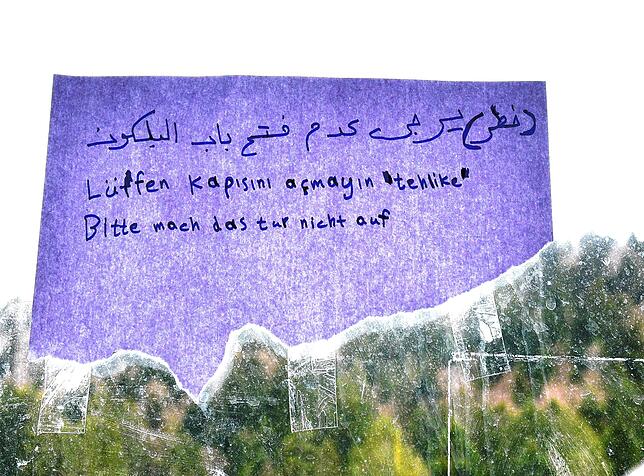 (خطر) يرجى عدم فتح باب البلكون
Lütfen kapısını açmayın "tehlike"
Bitte mach das tur nicht auf